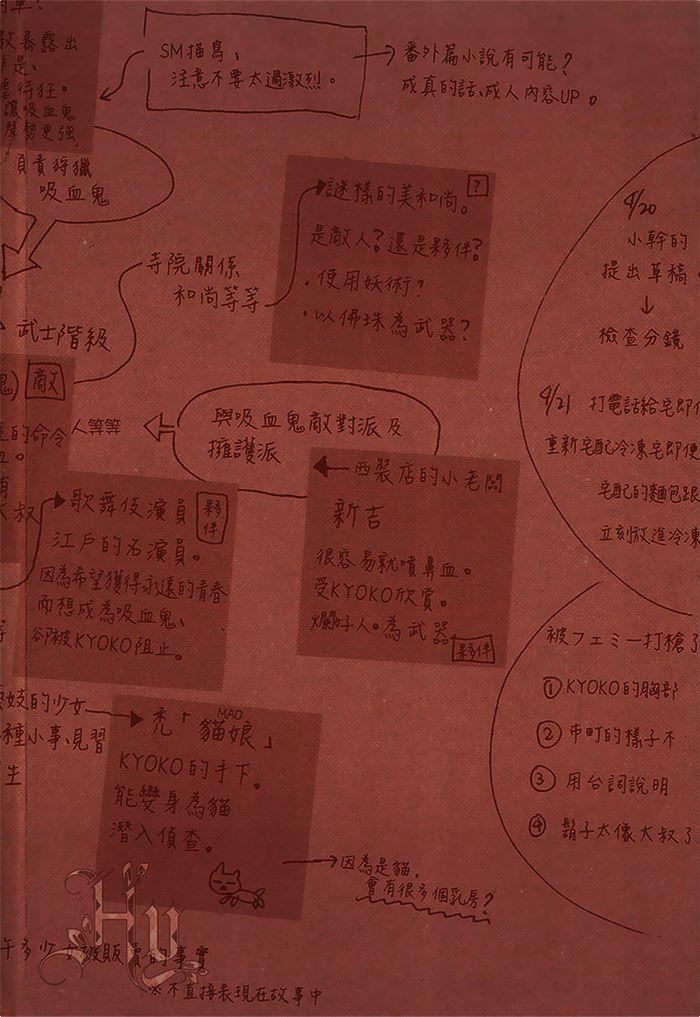 SM描寫、
注意不要太過激烈。
番外篇小說有可能?
成真的話、成人內容UP。
故暴露出
非是、
得狂。
讓吸血鬼
聲勢更強
負責狩獵
吸血鬼
寺院關係
和尚等等
武士階級
謎樣的美和尚。
?
是敵人?還是夥伴?
・使用妖術?
・以佛珠為武器?
4/20
小幹的
提出草稿
↓
檢查分鏡
4/21 打電話給宅即
重新宅配冷凍宅即便
宅配的麵包跟
立刻放進冷凍
鬼)
敵
的命令人等等
與吸血鬼敵對派及
擁護派
大叔
歌舞伎演員
夥伴
江戶的名演員。
因為希望獲得永遠的青春
而想成為吸血鬼、
卻被KYOKO阻止。
西裝店的小老闆
新吉
很容易就噴鼻血。
受KYOKO欣賞。
爛好人。為武器
夥伴
被フェミー打槍了
① KYOKO的胸部
② 市町的樣子不
③ 用台詞說明
④ 鬍子太像大叔了
妓的少女
種小事、見習
生
禿「貓娘」
MAO
KYOKO的手下。
能變身為貓
潛入偵查。
因為是貓,
會有很多個乳房?
Hy
許多少女被販賣的事實
※不直接表現在故事中